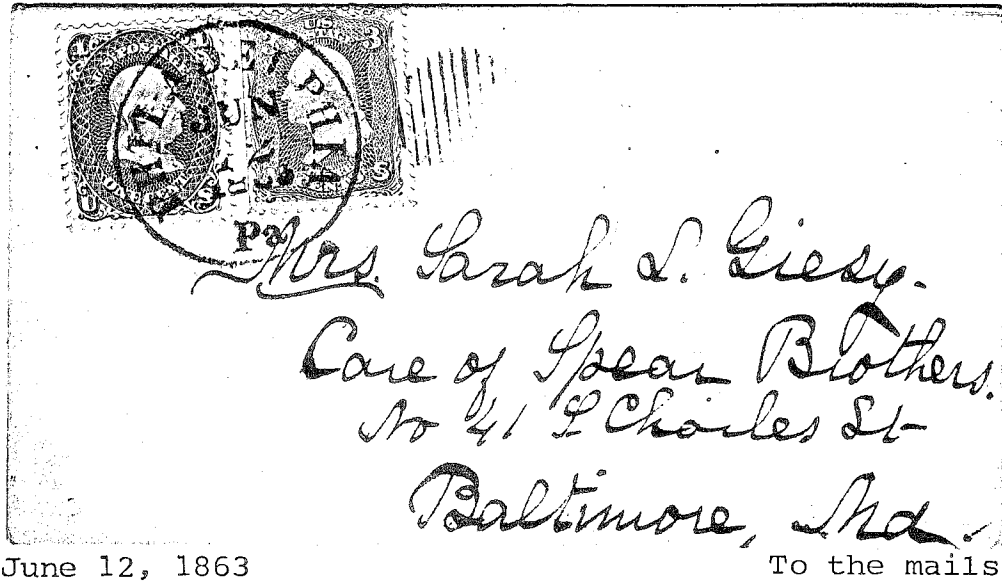 U.S. POSTAGE
ONE CENT
U.S.
3
PHILADELPHIA
JUN
12
Pa
Mrs. Sarah L. Giesy.
Care of Spear Brothers.
No 41 S Charles St
Baltimore, Md.
June 12, 1863
To the mails